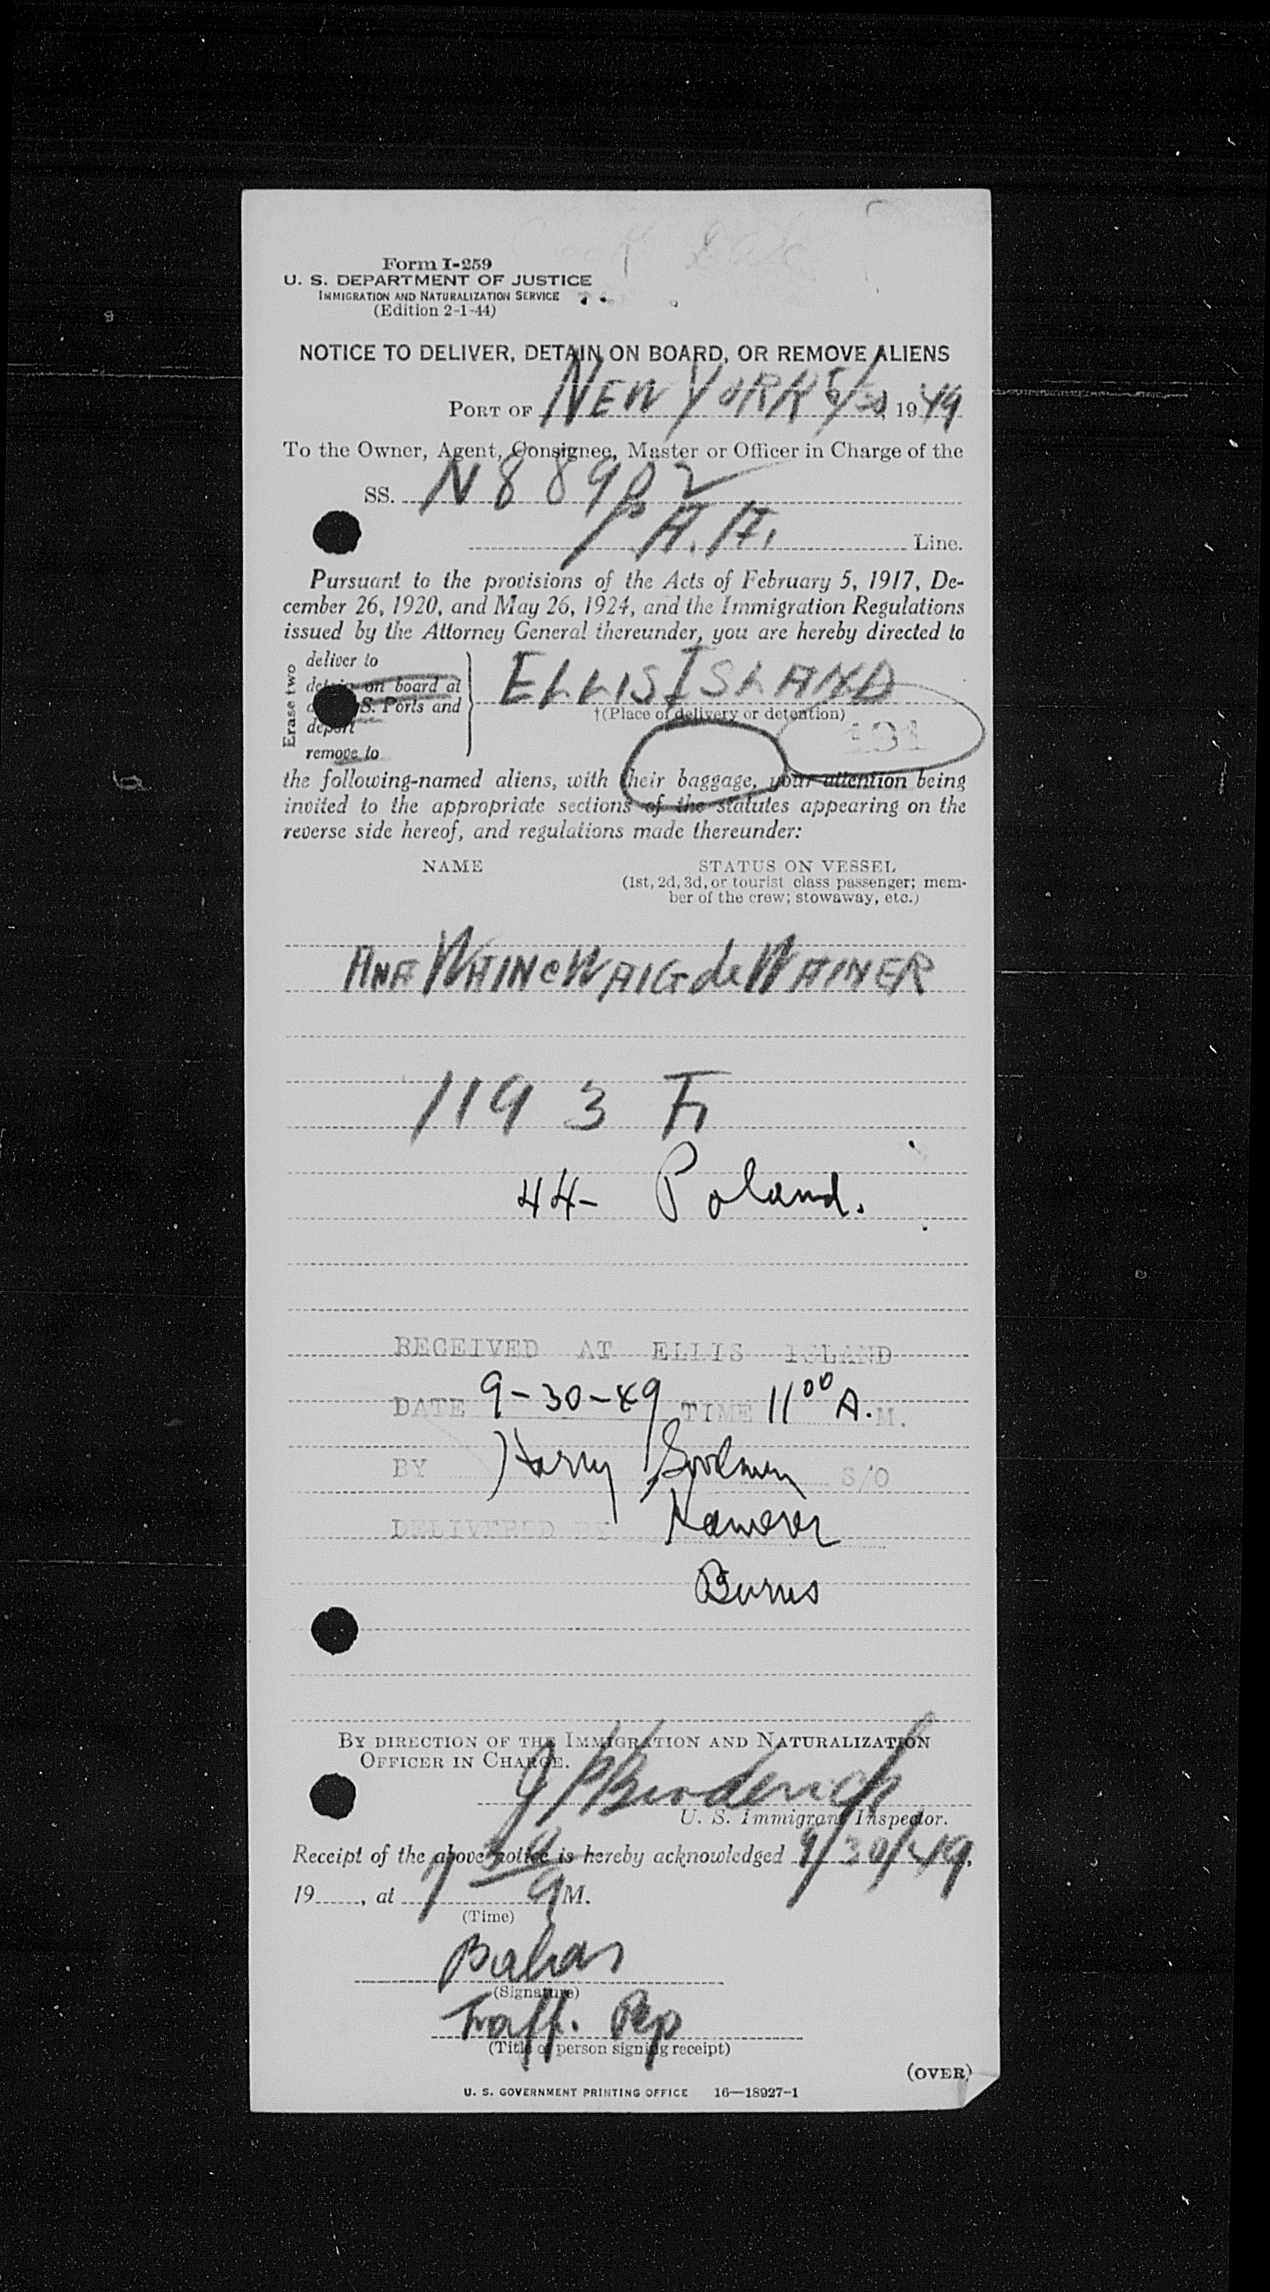 Form I-259
U. S. DEPARTMENT OF JUSTICE
IMMIGRATION AND NATURALIZATION SERVICE
(Edition 2-1-44)
NOTICE TO DELIVER, DETAIN ON BOARD, OR REMOVE ALIENS
PORT OF NEW YORK 1949
To the Owner, Agent, Consignee, Master or Officer in Charge of the
SS. N 889
P.A.A. Line.
Pursuant to the provisions of the Acts of February 5, 1917, De-
cember 26, 1920, and May 26, 1924, and the Immigration Regulations
issued by the Attorney General thereunder, you are hereby directed to
Erase two
deliver to
on board at
S. Ports and
deport
remove to
ELLIS ISLAND
†(Place of delivery or detention)
131
the following-named aliens, with their baggage, your attention being
invited to the appropriate sections of the statutes appearing on the
reverse side hereof, and regulations made thereunder:
NAME STATUS ON VESSEL
(1st, 2d, 3d, or tourist class passenger; mem-
ber of the crew; stowaway, etc.)
ANA de WAINER
119 3
44- Poland.
RECEIVED AT ELLIS ISLAND
DATE 9-30-49 TIME 11 00 A.M.
BY Harry Goodman S/O
DELIVERED BY
Burns
BY DIRECTION OF THE IMMIGRATION AND NATURALIZATION
OFFICER IN CHARGE.
J P Broderick
U. S. Immigrant Inspector.
Receipt of the above notice is hereby acknowledged 9/30/49,
19 , at M.
(Time)
(Signature)
Traff. Rep
(Title of person signing receipt)
(OVER)
U. S. GOVERNMENT PRINTING OFFICE 16—18927-1